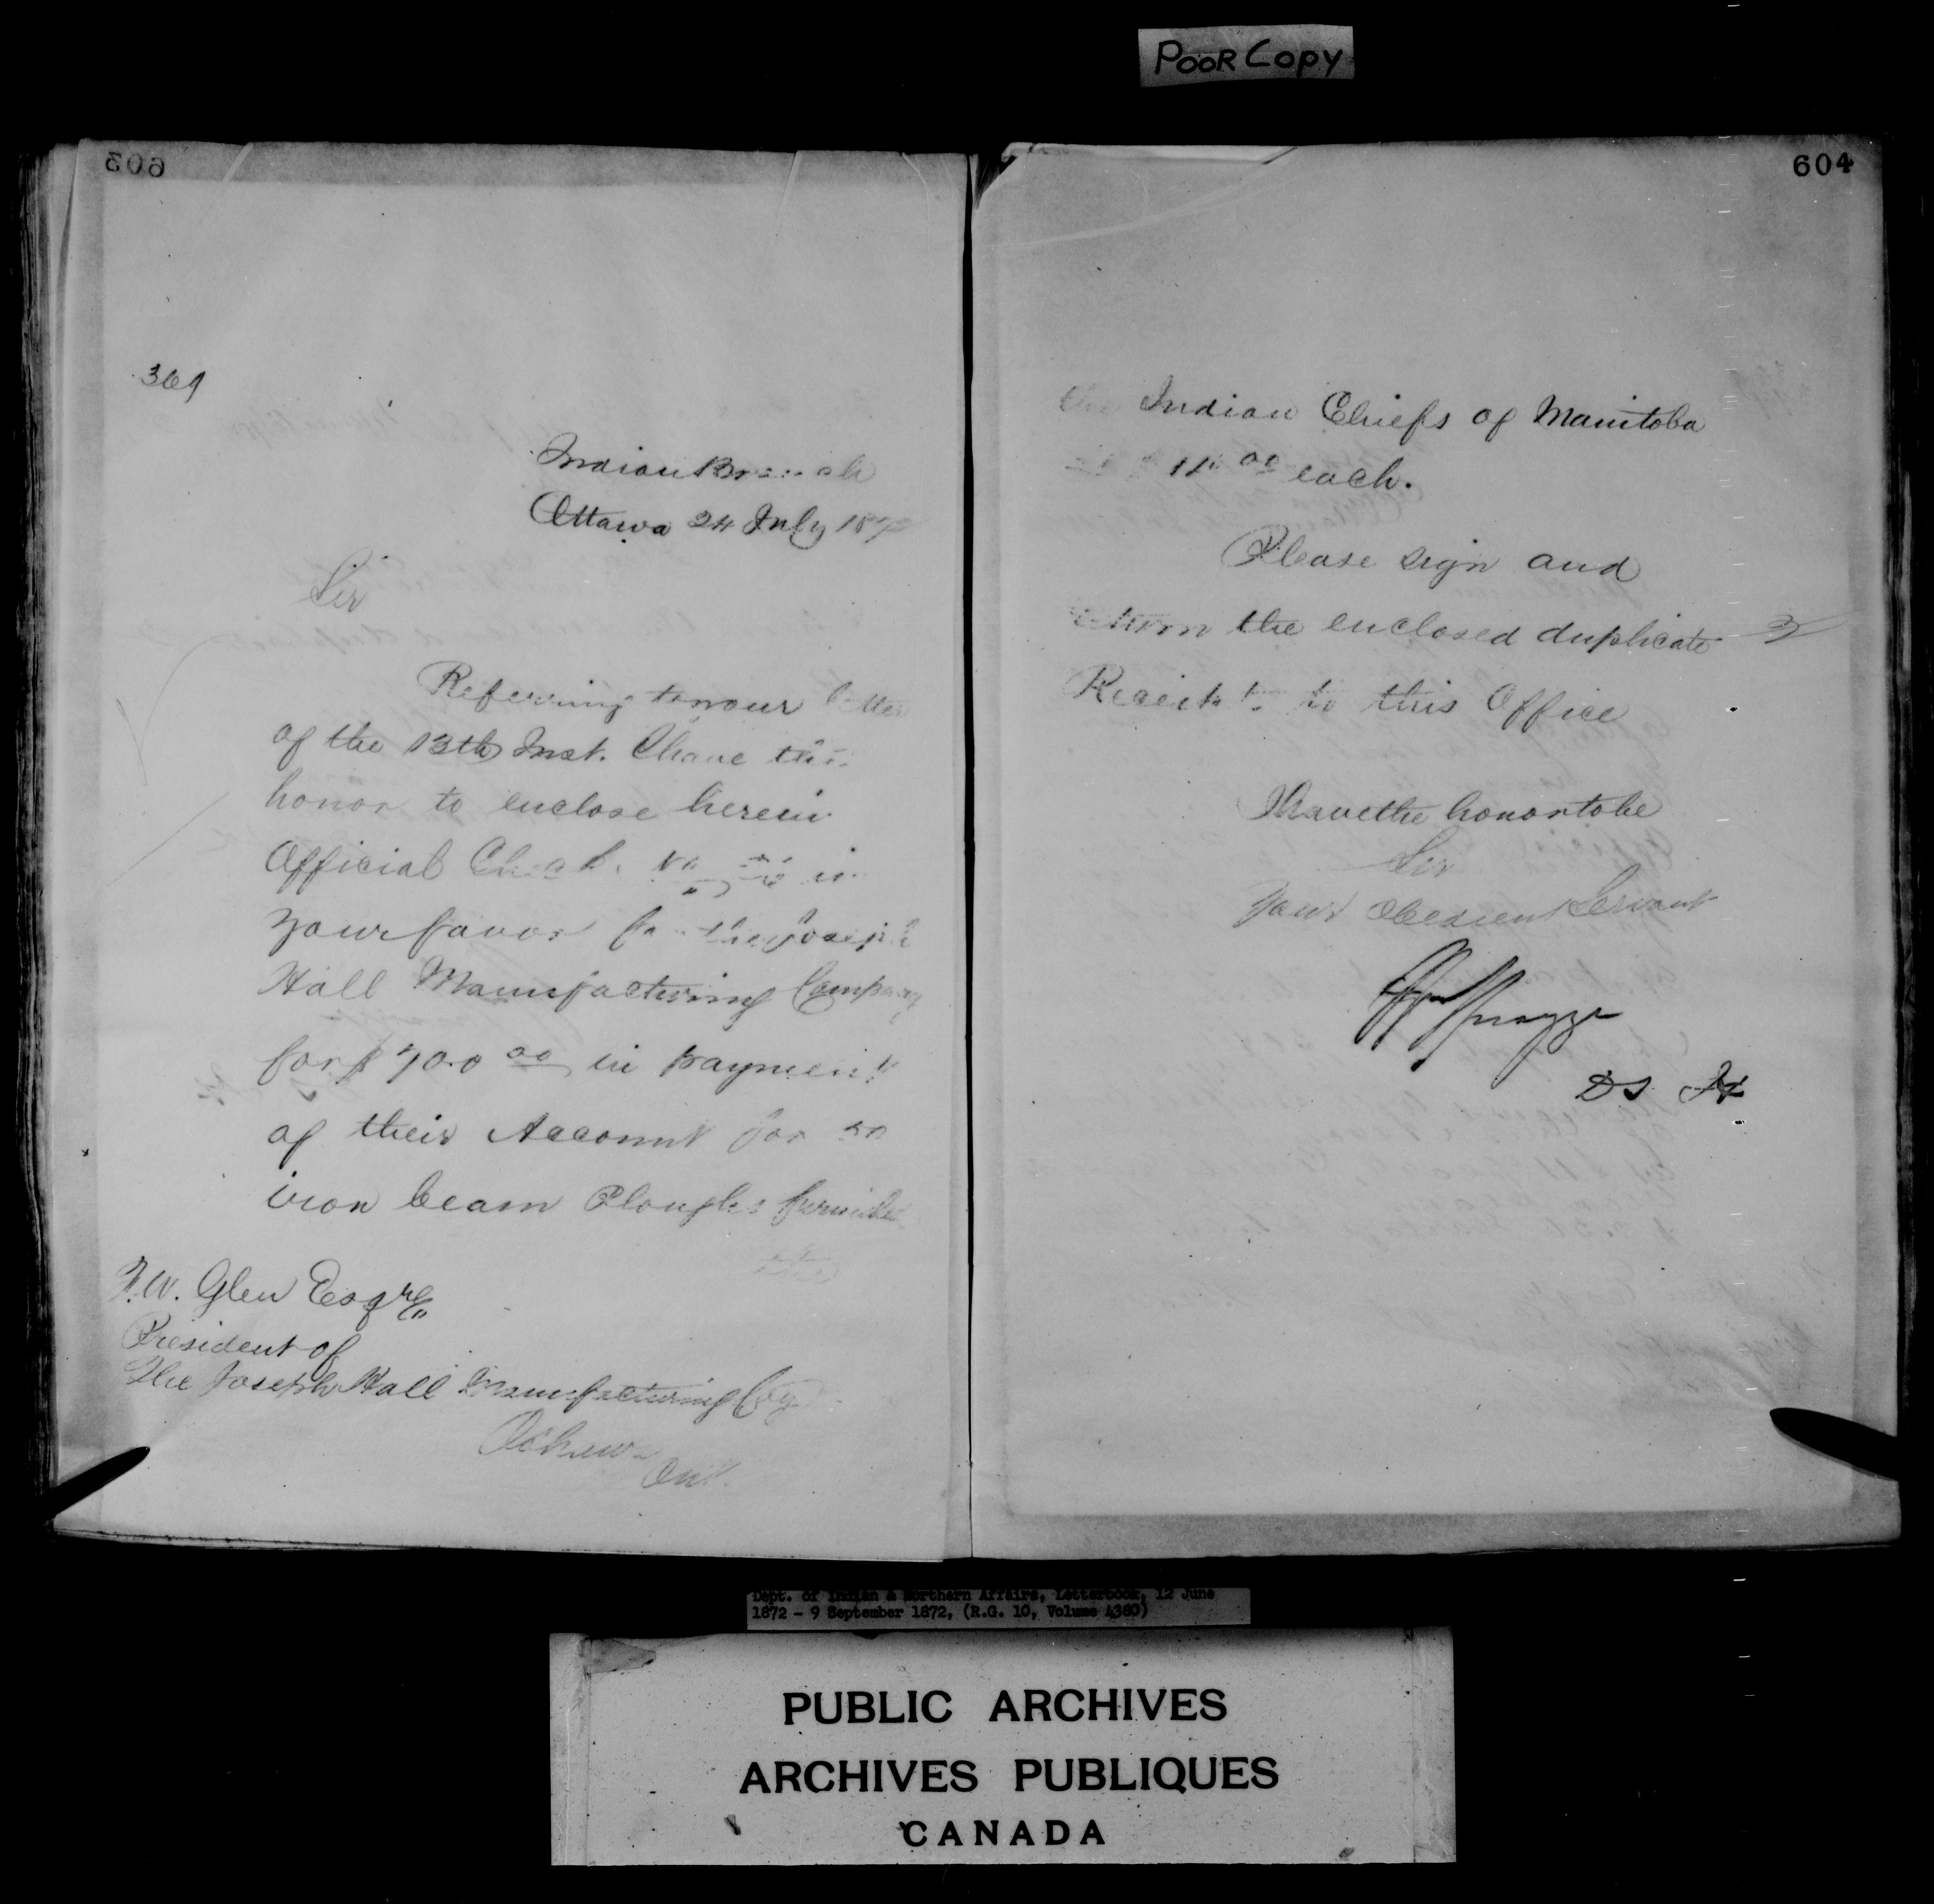 POOR Copy
603
369
Indian Branch
Ottawa 24 July 187
Sir
Referring to your letter
of the 13th Inst. I have the
honor to enclose herein
Official Check No in
your favor for the Joseph
Hall Manufacturing Company
for $700 00 in payment
of their Account for 50
iron beam Ploughs furnished
the
F.W. Glen Esqre
President of
The Joseph Hall Manufacturing Coy
Oshawa
Ont.
604
the Indian Chiefs of Manitoba
at $ 00 each.
Please sign and
return the enclosed duplicate
Receipt to this Office
I have the honor to be
Sir
Your Obedient Servant
Spragge
D S I A
Dept. of Indian & Northern Affairs, Letterbook, 12 June
1872 - 9 September 1872, (R.G. 10, Volume 4380)
PUBLIC ARCHIVES
ARCHIVES PUBLIQUES
CANADA